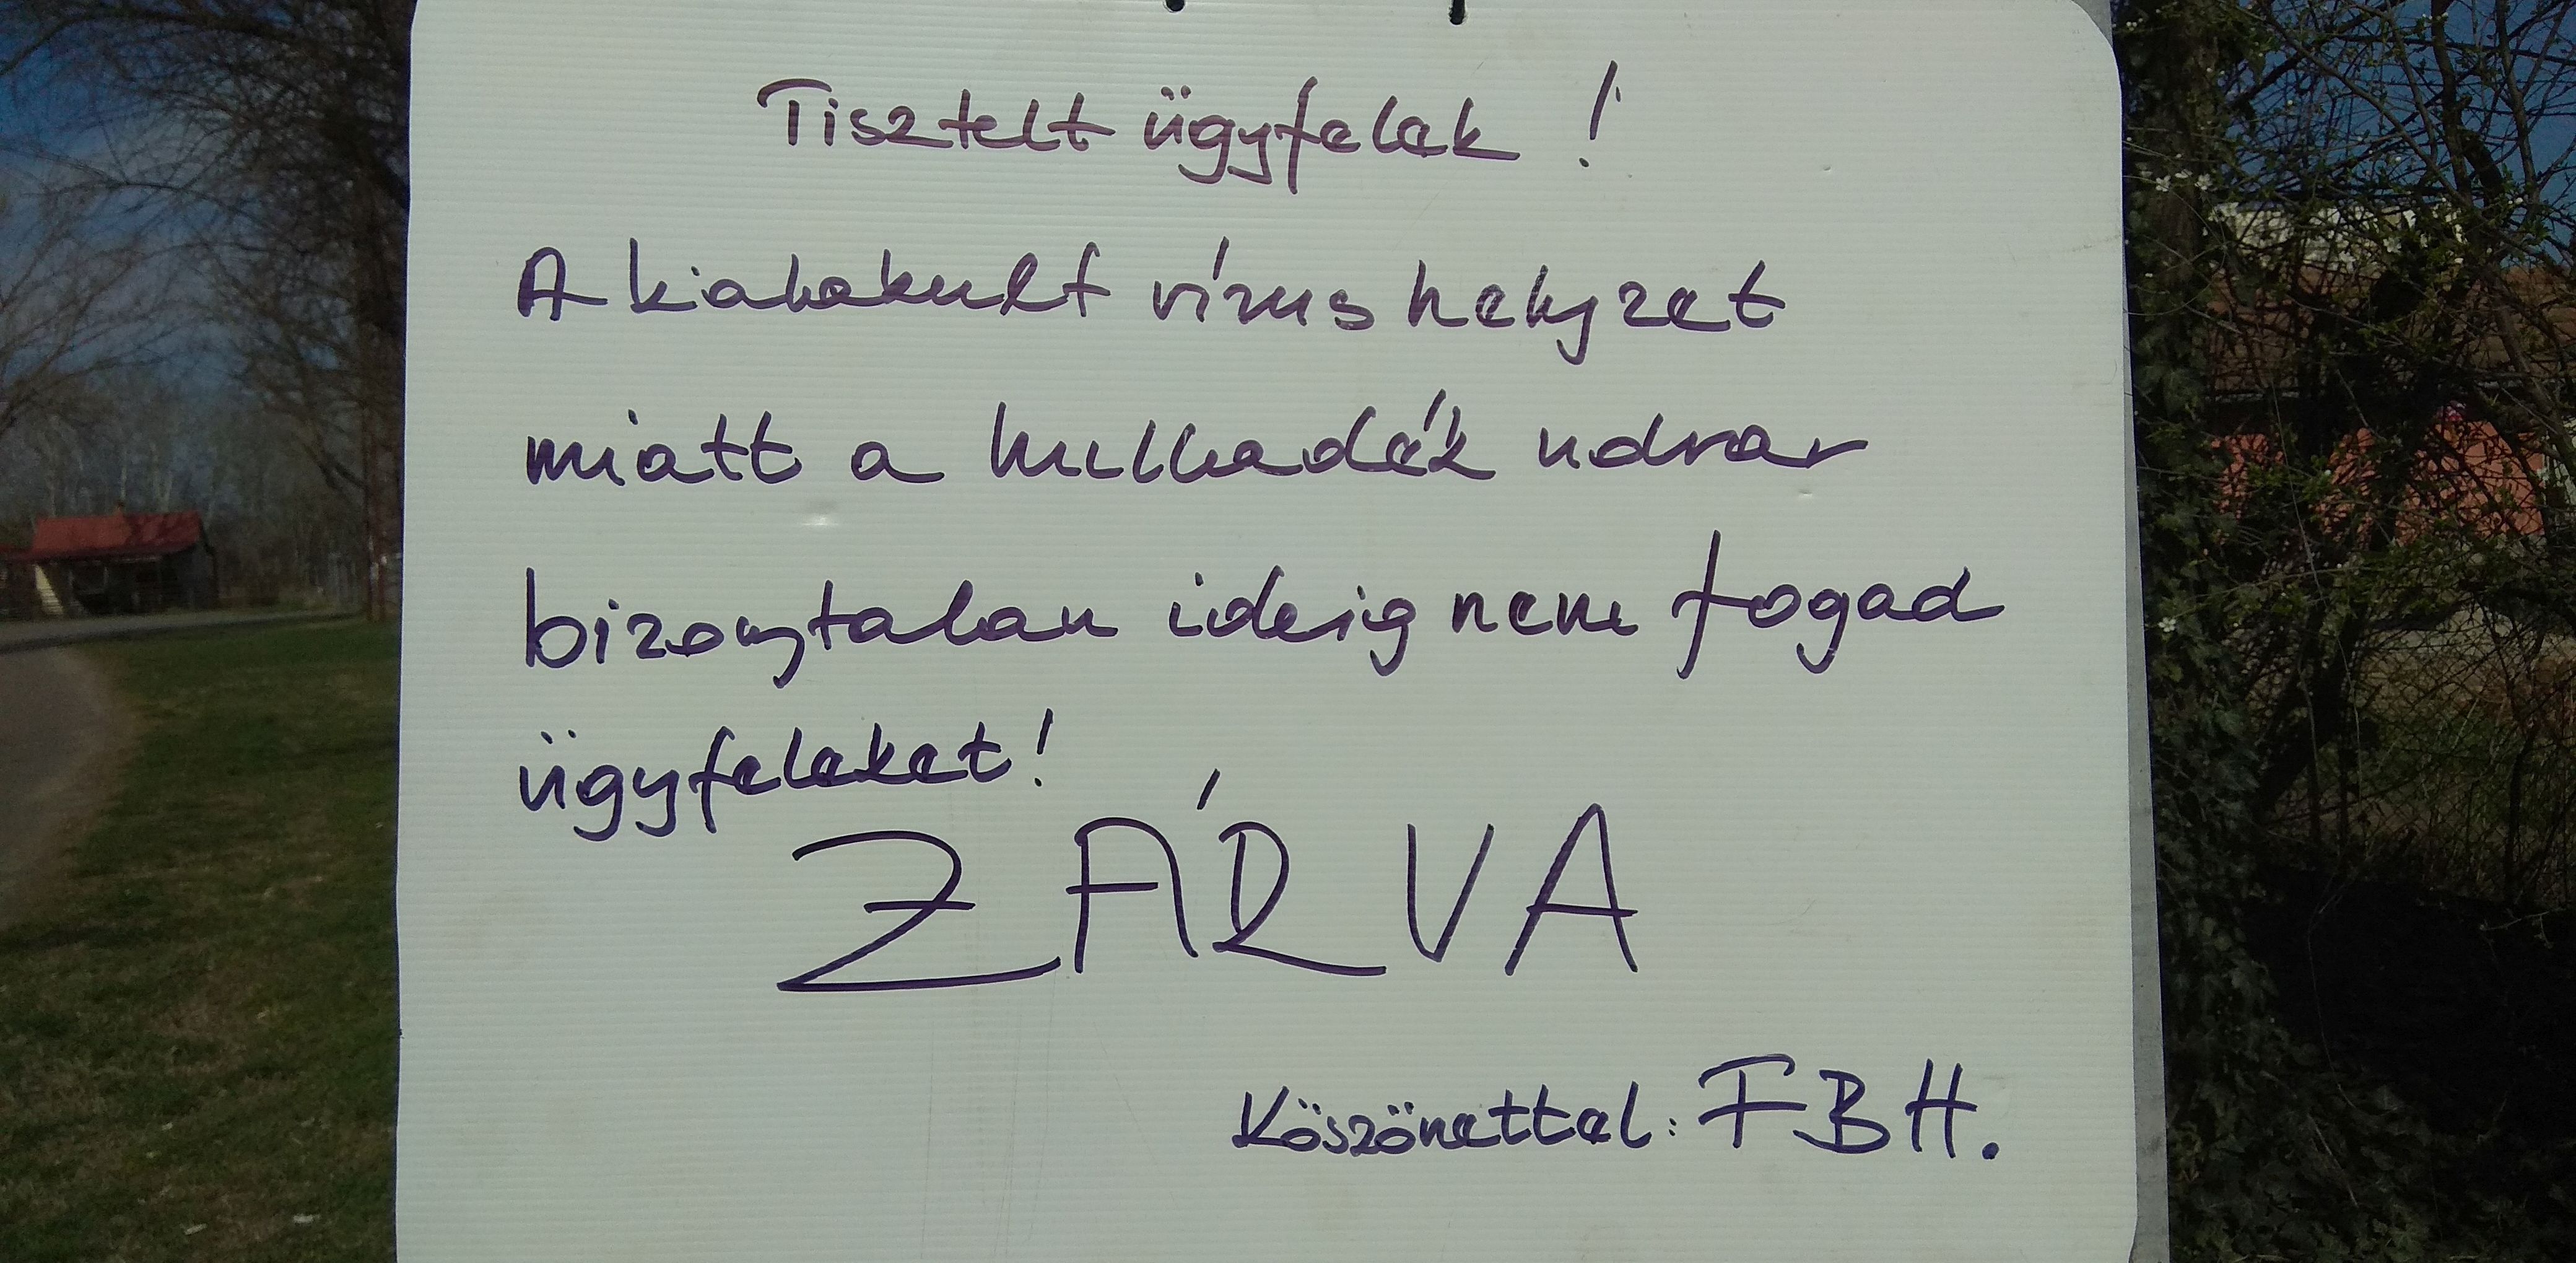 Tisztelt ügyfelek!
A kialakult vírus helyzet
miatt a hulladék udvar
bizonytalan ideig nem fogad
ügyfeleket!
ZÁRVA
Köszönettel: FBH.